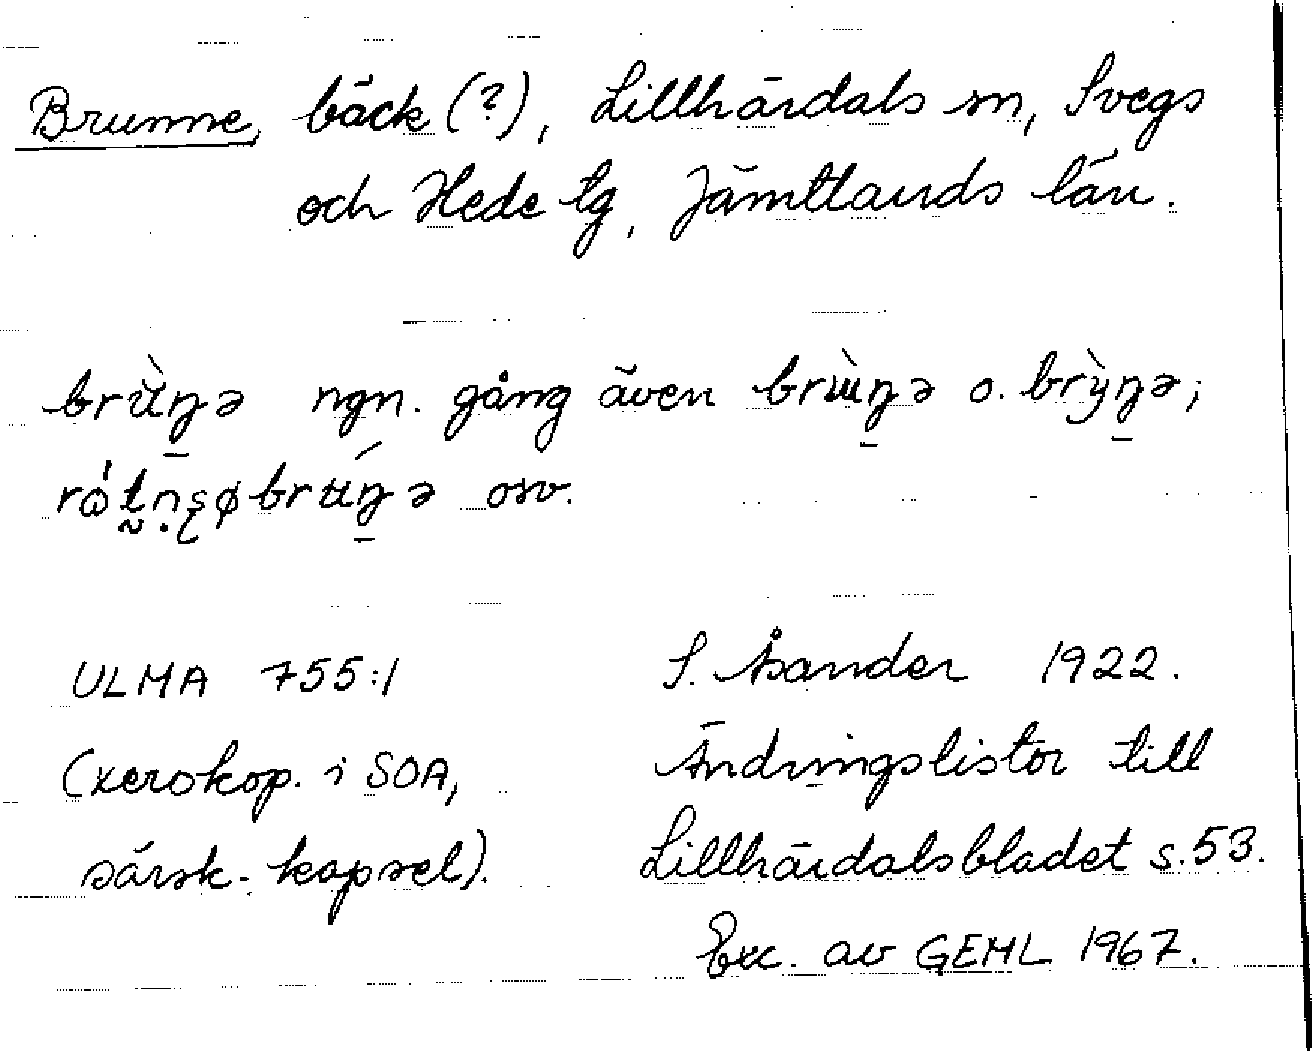 Brunne, bäck (?), Lillhärdals sn, Svegs
och Hede tg, Jämtlands län.
ngn. gång även o.
osv.
ULMA 755:1 S. Åsander 1922.
(xerokop. i SOA, Ändringslistor till
särsk. kapsel). Lillhärdalsbladet s. 53.
Exc. av GEHL 1967.